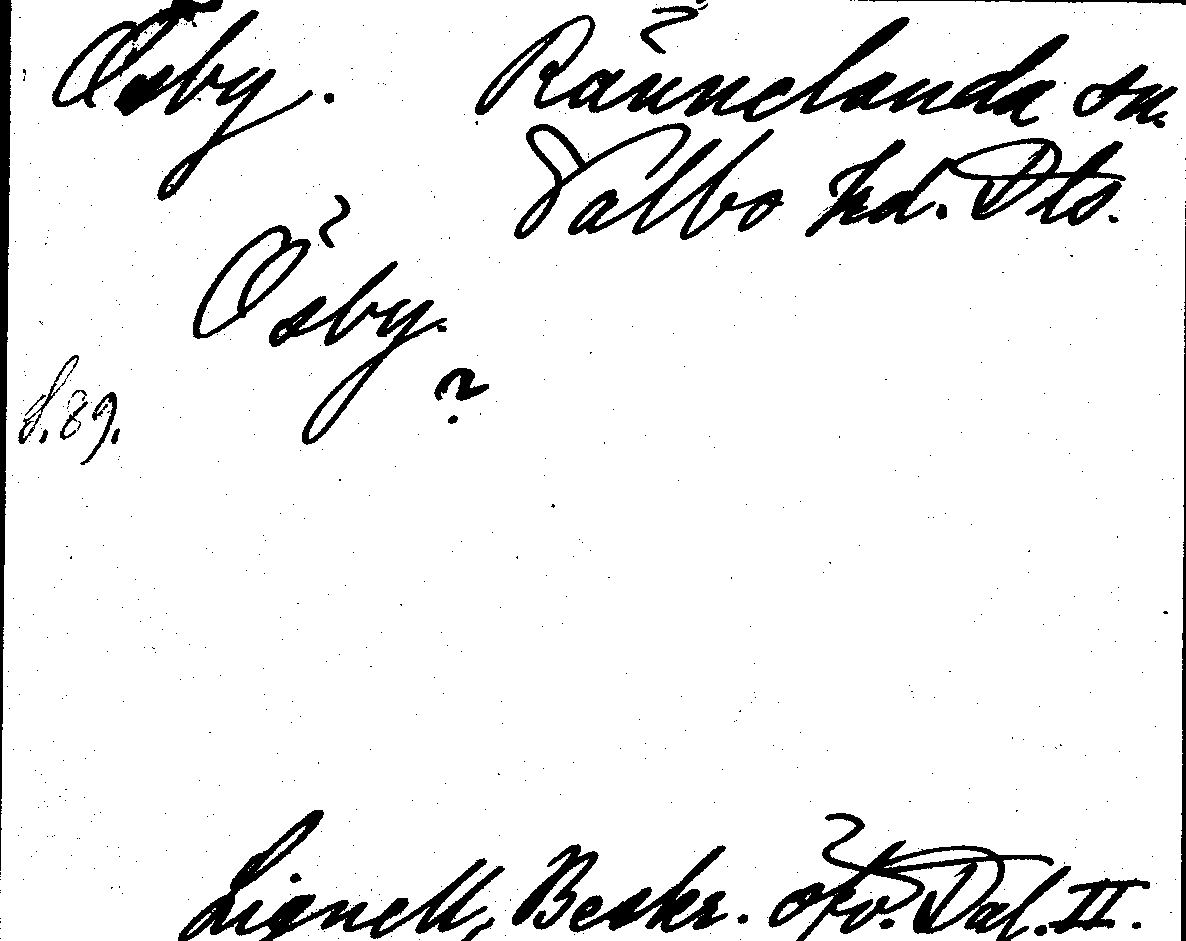 Ösby. Rännelanda sn.
Valbo hd. Dls.
Ösby.
?
S. 89.
Lignell, Beskr. öfv. Dal. II.